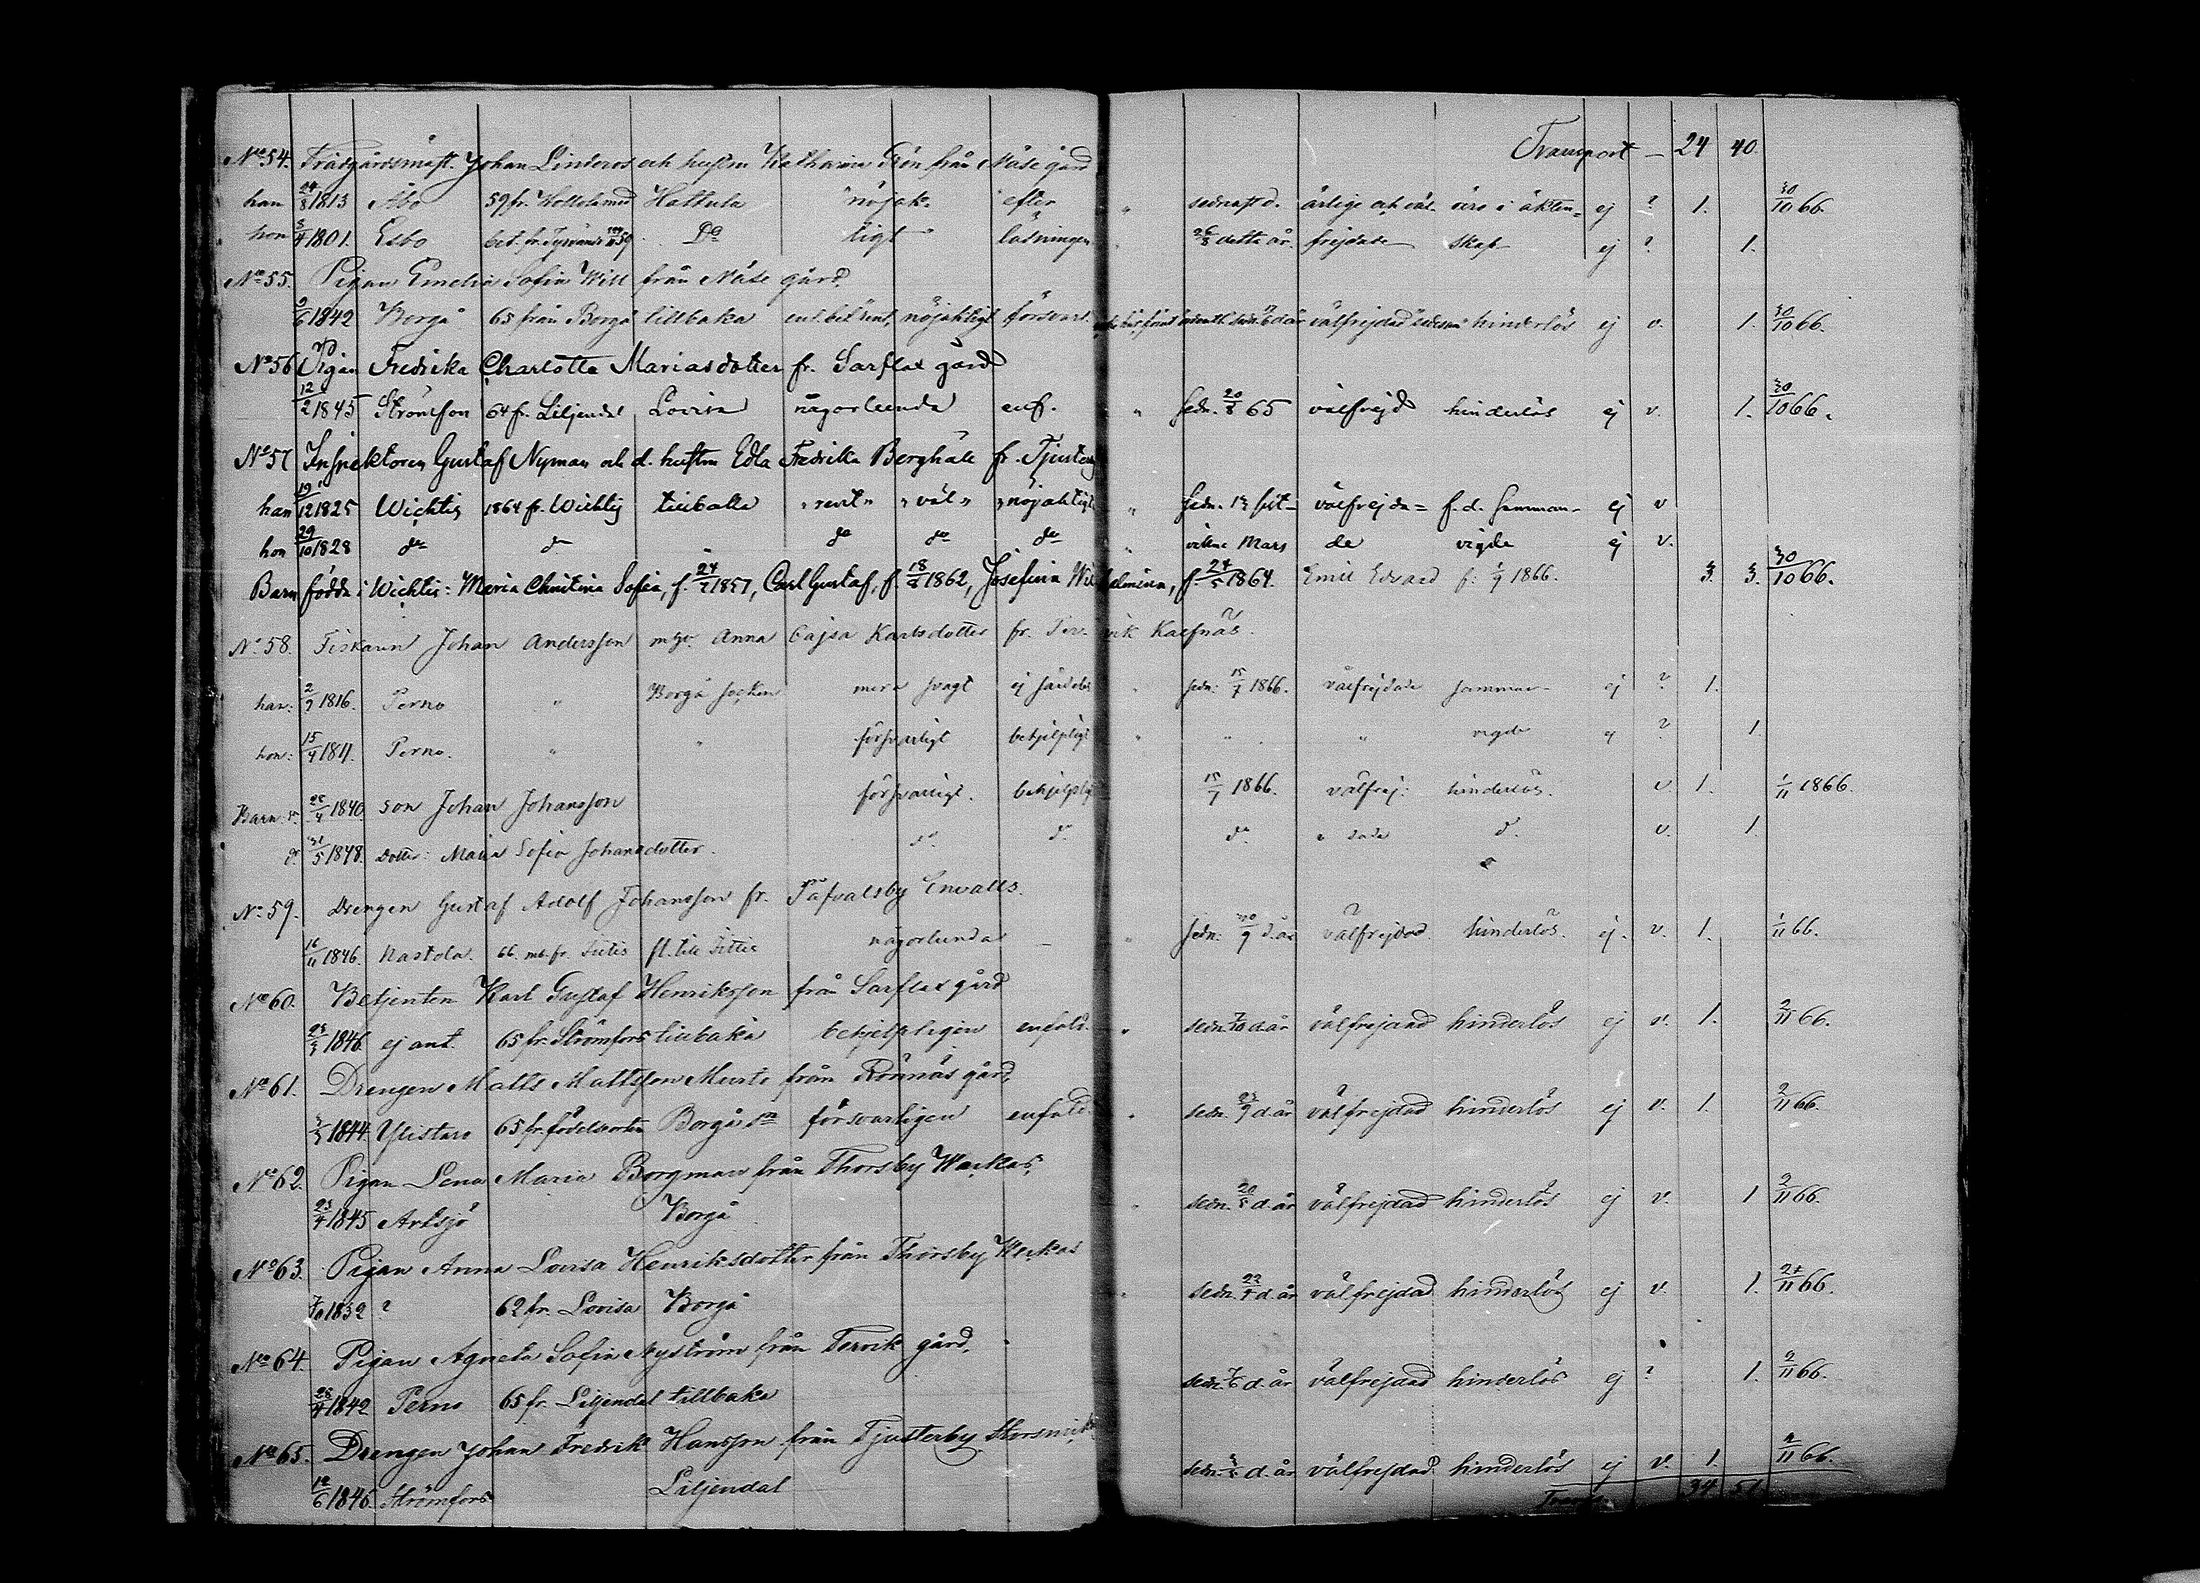 Transport – 24 40.
No 54. Trädgårdsmäst. Johan Linderos och hustru Katharina från Näse gård
han 24/8 1813 Åbo 59 fr. Hattula nöjak- efter sednast d. ärlige och väl- äro i äkten- ej ? 1. 30/10 66.
hon 1801. Esbo Do ligt läsningen detta år. frejdade skap ej ? 1.
No 55. Pigan Emelia Sofia Will från Näse gård.
9/6 1842 Borgå 65 från Borgå tillbaka nöjaktigt försvarl. välfrejdad hinderlös ej v. 1. 30/10 66.
No 56 Pigan Fredrika Charlotta Mariasdotter fr. Sarflax gård
12/2 1845 Strömfors 64 fr. Liljendal Lovisa någorlunda enf. " sedn. 20/8 65 välfrejd hinderlös ej v. 1. 30/10 66.
No 57 Inspektoren Gustaf Nyman och d. hustru Edla Fredrika Berghäll fr. Tjusterby
han 19/12 1825 Wichtis 1864 fr. Wichtis tillbaka "rent" "väl" "nöjaktigt" " sedn. välfrejda= f.d. samman- ej v
hon 29/10 1828 do do do do do " Mars de vigde ej v.
Barn födda i Wichtis: Maria Christina Sofia, f. 1857, Carl Gustaf, f. 1862, Josefina Wilhelmina, f. 24/5 1864. Emil Edvard f. 1866. 3. 3. 30/10 66.
No 58. Fiskaren Johan Andersson m. h. Anna Cajsa Karlsdotter fr. Tervik Kalfnäs.
han: 2/9 1816. Perno " Borgå socken mera svagt ej " sedn: 15/7 1866. välfrejdade samman- ej ? 1.
hon: 15/4 1811. Perno. " " försvarligt behjelpligt " " " vigde ej ? 1
Barn: 1840. son Johan Johansson försvarligt. behjelpligt 15/7 1866. välfrej: hinderlös. v. 1. 1/11 1866.
d. 31/5 1848. dotter: Maria Sofia Johansdotter. do do do " dade do. v. 1.
No 59. Drengen Gustaf Adolf Johansson fr. Tafvalsby Envalls.
16/11 1846. Nastola. 66. fr. Sittis fl. till Sittis någorlunda – " sedn: 30/9 d. år välfrejdad hinderlös. ej. v. 1. 1/11 66.
No 60. Betjenten Karl Gustaf Henriksson från Sarflax gård
1846 ej ant. 65 fr. Strömfors tillbaka behjelpligen enfald. " sedn. 7/10 d. år välfrejdad hinderlös ej v. 1. 2/11 66.
No 61. Drengen Matts Mattsson från Rönnäs gård,
1844 Ylistaro 65 fr. födelseorten Borgå försvarligen enfald. " sedn. 23/9 d. år välfrejdad hinderlös ej v. 1. 2/11 66.
No 62. Pigan Lena Maria Borgman från Thorsby Warkas,
23/4 1845 Artsjö Borgå " sedn. d. år välfrejdad hinderlös ej v. 1 2/11 66.
No 63. Pigan Anna Lovisa Henriksdotter från Thorsby Warkas
7/10 1832 ? 62 fr. Lovisa Borgå " sedn. d. år välfrejdad hinderlös ej v. 1. 66.
No 64. Pigan Agneta Sofia Nyström från Tervik gård,
28/4 1842 Perno 65 fr. Liljendal tillbaka sedn. 7/6 d. år välfrejdad hinderlös ej ? 1. 2/11 66.
No 65. Drengen Johan Fredrik Hansson från Tjusterby
12/6 1846 Strömfors Liljendal sedn. d. år välfrejdad hinderlös ej v. 1. 2/11 66.
Transp. 34 51